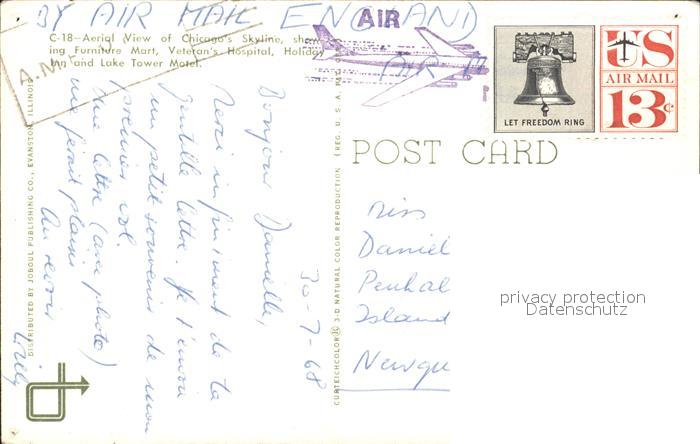 BY AIR MAIL ENGLAND
AIR
AIR M
A.M.
C-18—Aerial View of Chicago's Skyline, show-
ing Furniture Mart, Veteran's Hospital, Holiday
Inn and Lake Tower Motel.
US
AIR MAIL
13c
LET FREEDOM RING
POST CARD
30-7-68
Bonjour Danielle,
Merci infiniment de ta
gentille lettre. Je t'envoie
un petit souvenir de mon
premier vol.
Une lettre (avec photo)
me ferait plaisir
Au revoir
Willy
Miss
Daniel
Penhal
Island
Newqu
privacy protection
Datenschutz
DISTRIBUTED BY JOBOUL PUBLISHING CO., EVANSTON, ILLINOI
CURTEICHCOLOR 3-D NATURAL COLOR REPRODUCTION (REG. U.S.A. PAT. O